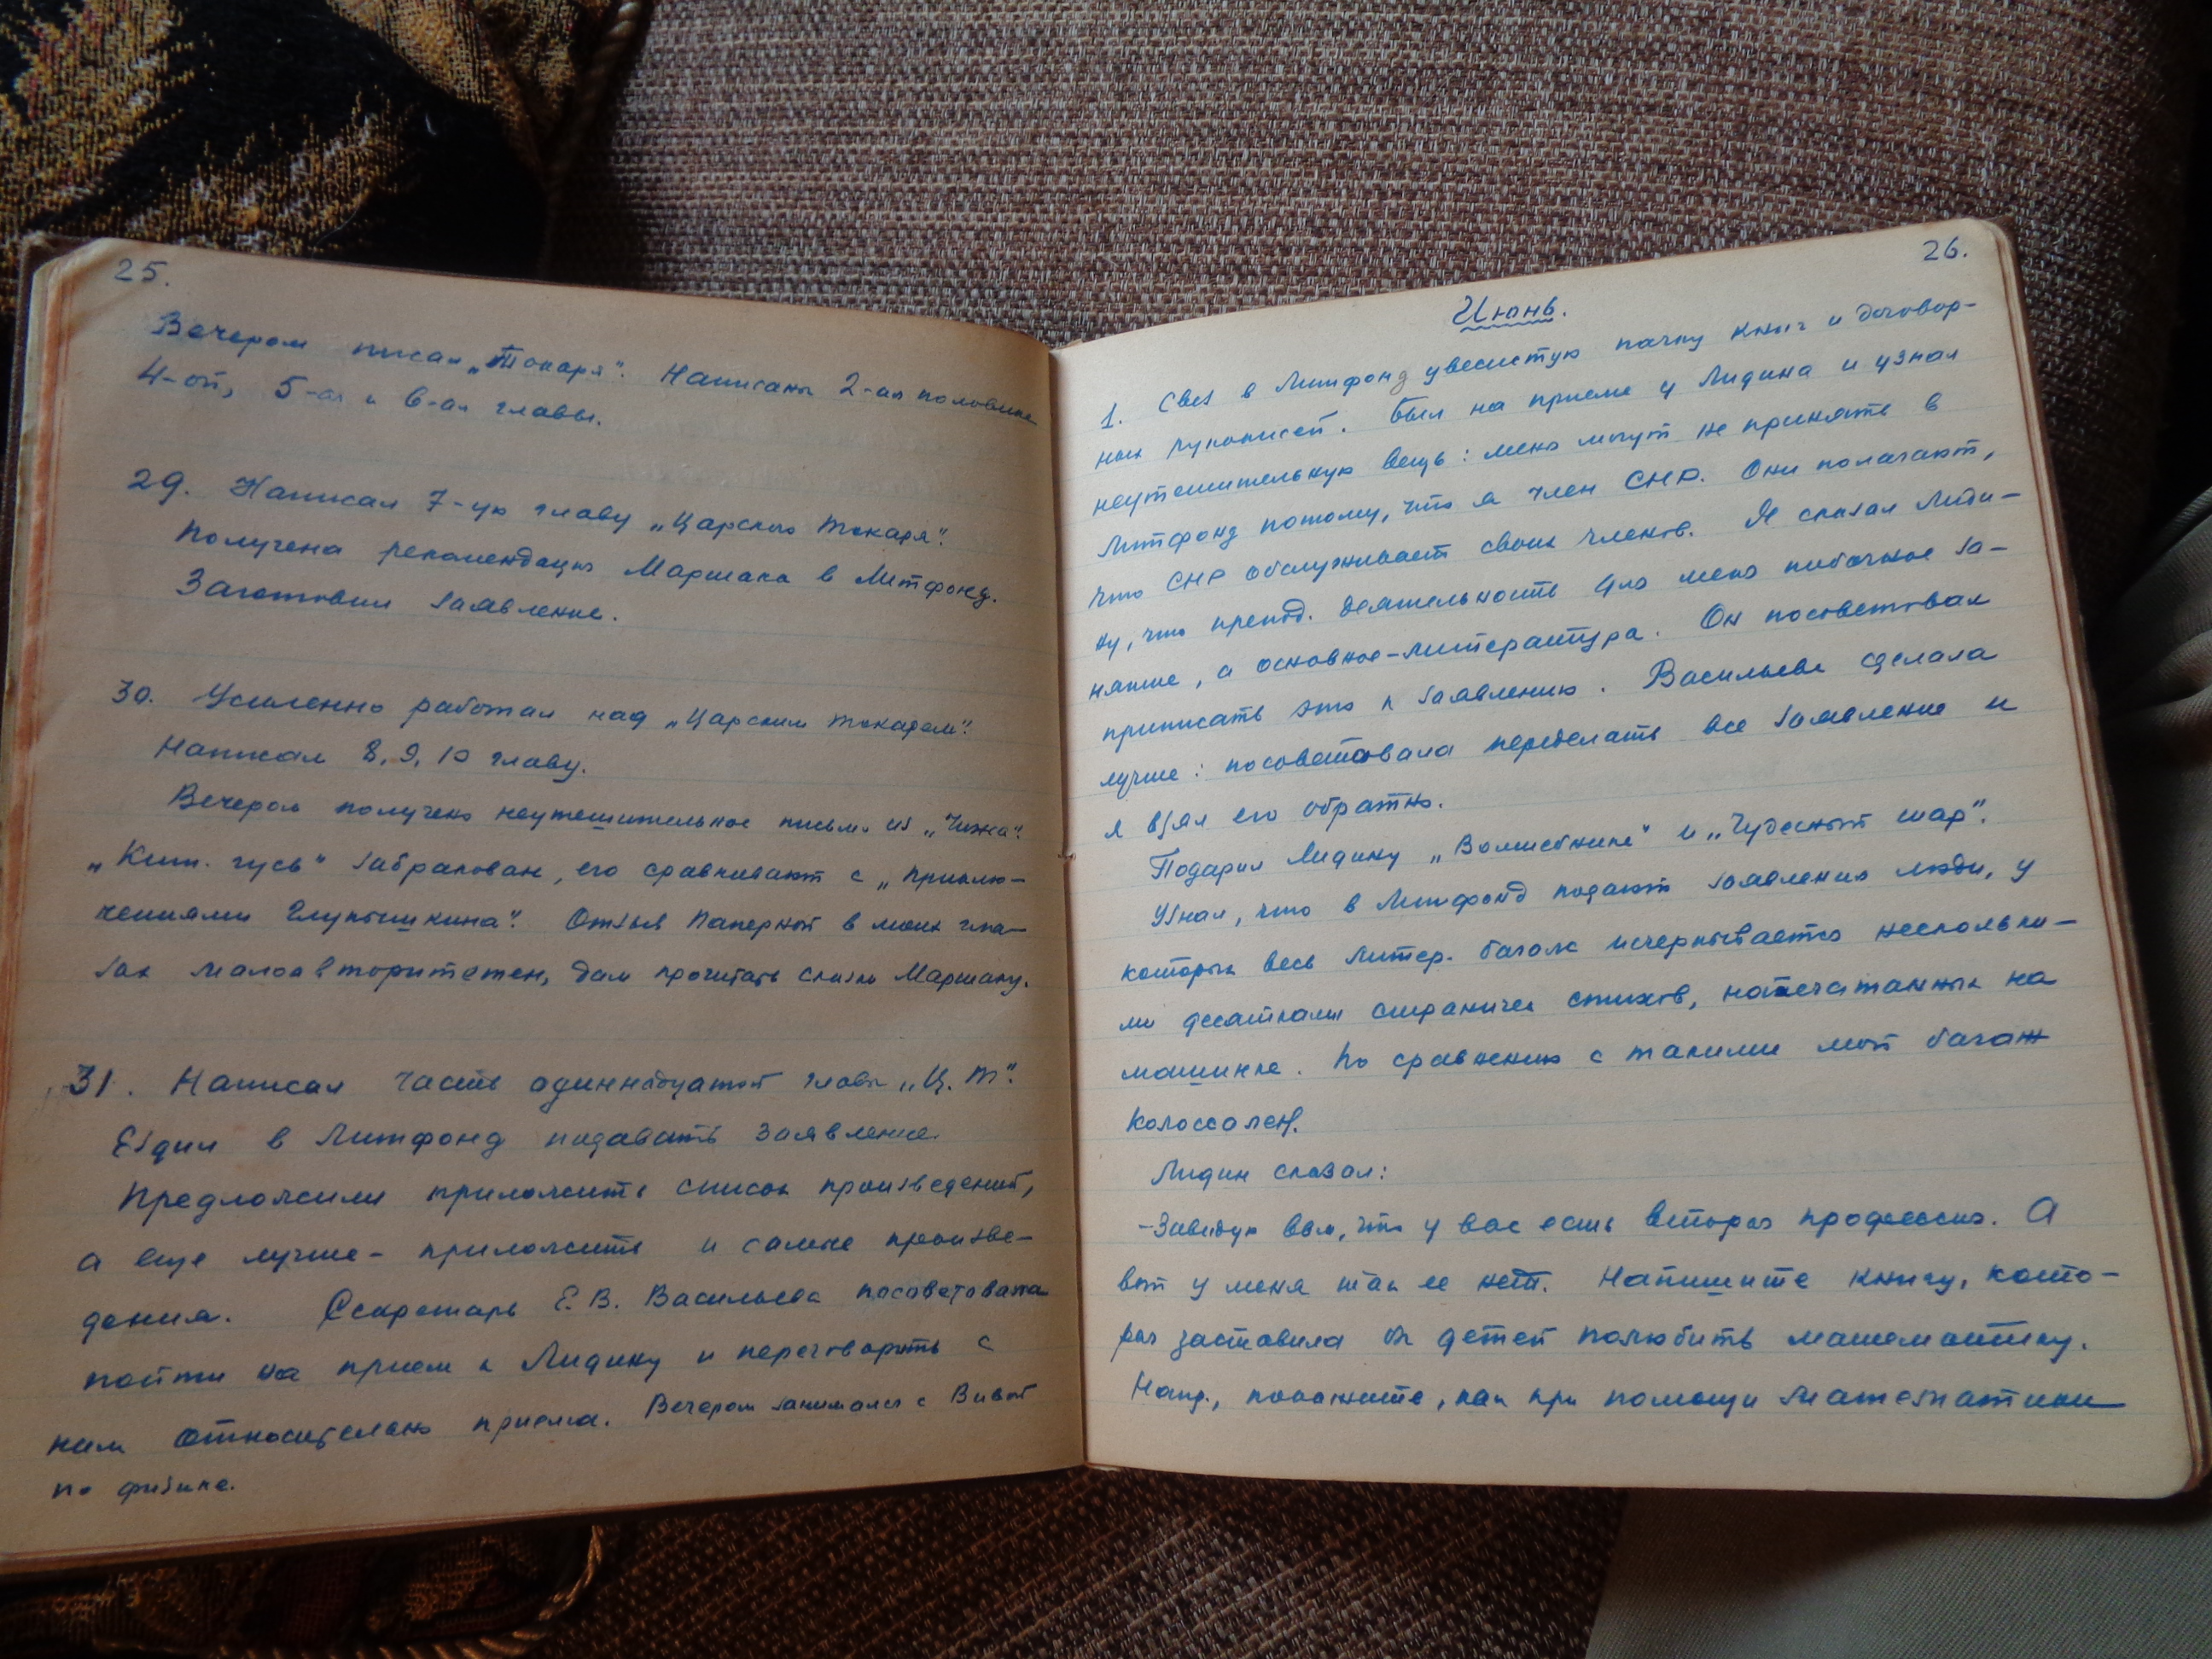 25.
Вечером писал „Токаря". Написаны 2-ая половина
4-ой, 5-ая и 6-ая главы.
29. Написал 7-ую главу „Царского токаря".
Получена рекомендация Маршака в Литфонд.
Заготовил заявление.
30. Усиленно работал над „Царским токарем".
Написал 8, 9, 10 главу.
Вечером получено неутешительное письмо из „Чижа".
„Хит. гусь" забракован, его сравнивают с „Приклю-
чениями Глупышкина". Отзыв Паперной в моих гла-
зах малоавторитетен, дам прочитать сказку Маршаку.
31. Написал часть одиннадцатой главы „Ц. т".
Ездил в Литфонд подавать заявление.
Предложили приложить список произведений,
а еще лучше - приложить и самые произве-
дения. Секретарь Е. В. Васильева посоветовала
пойти на прием к Лидину и переговорить с
ним относительно приема. Вечером занимался с Вивой
по физике.
26.
Июнь.
1. Свез в Литфонд увесистую пачку книг и договор-
ных рукописей. Был на приеме у Лидина и узнал
неутешительную вещь: меня могут не принять в
Литфонд потому, что я член СНР. Они полагают,
что СНР обслуживает своих членов. Я сказал Лиди-
ну, что препод. деятельность для меня побочное за-
нятие, а основное - литература. Он посоветовал
приписать это к заявлению. Васильева сделала
лучше: посоветовала переделать все заявление и
я взял его обратно.
Подарил Лидину „Волшебника" и „Чудесный шар".
Узнал, что в Литфонд подают заявления люди, у
которых весь литер. багаж исчерпывается несколькки-
ми десятками страничек стихов, напечатанных на
машинке. По сравнению с такими мой багаж
колоссален.
Лидин сказал:
- Завидую вам, что у вас есть вторая профессия. А
вот у меня так ее нет. Напишите книгу, кото-
рая заставила бы детей полюбить математику.
Напр., покажите, как при помощи математики